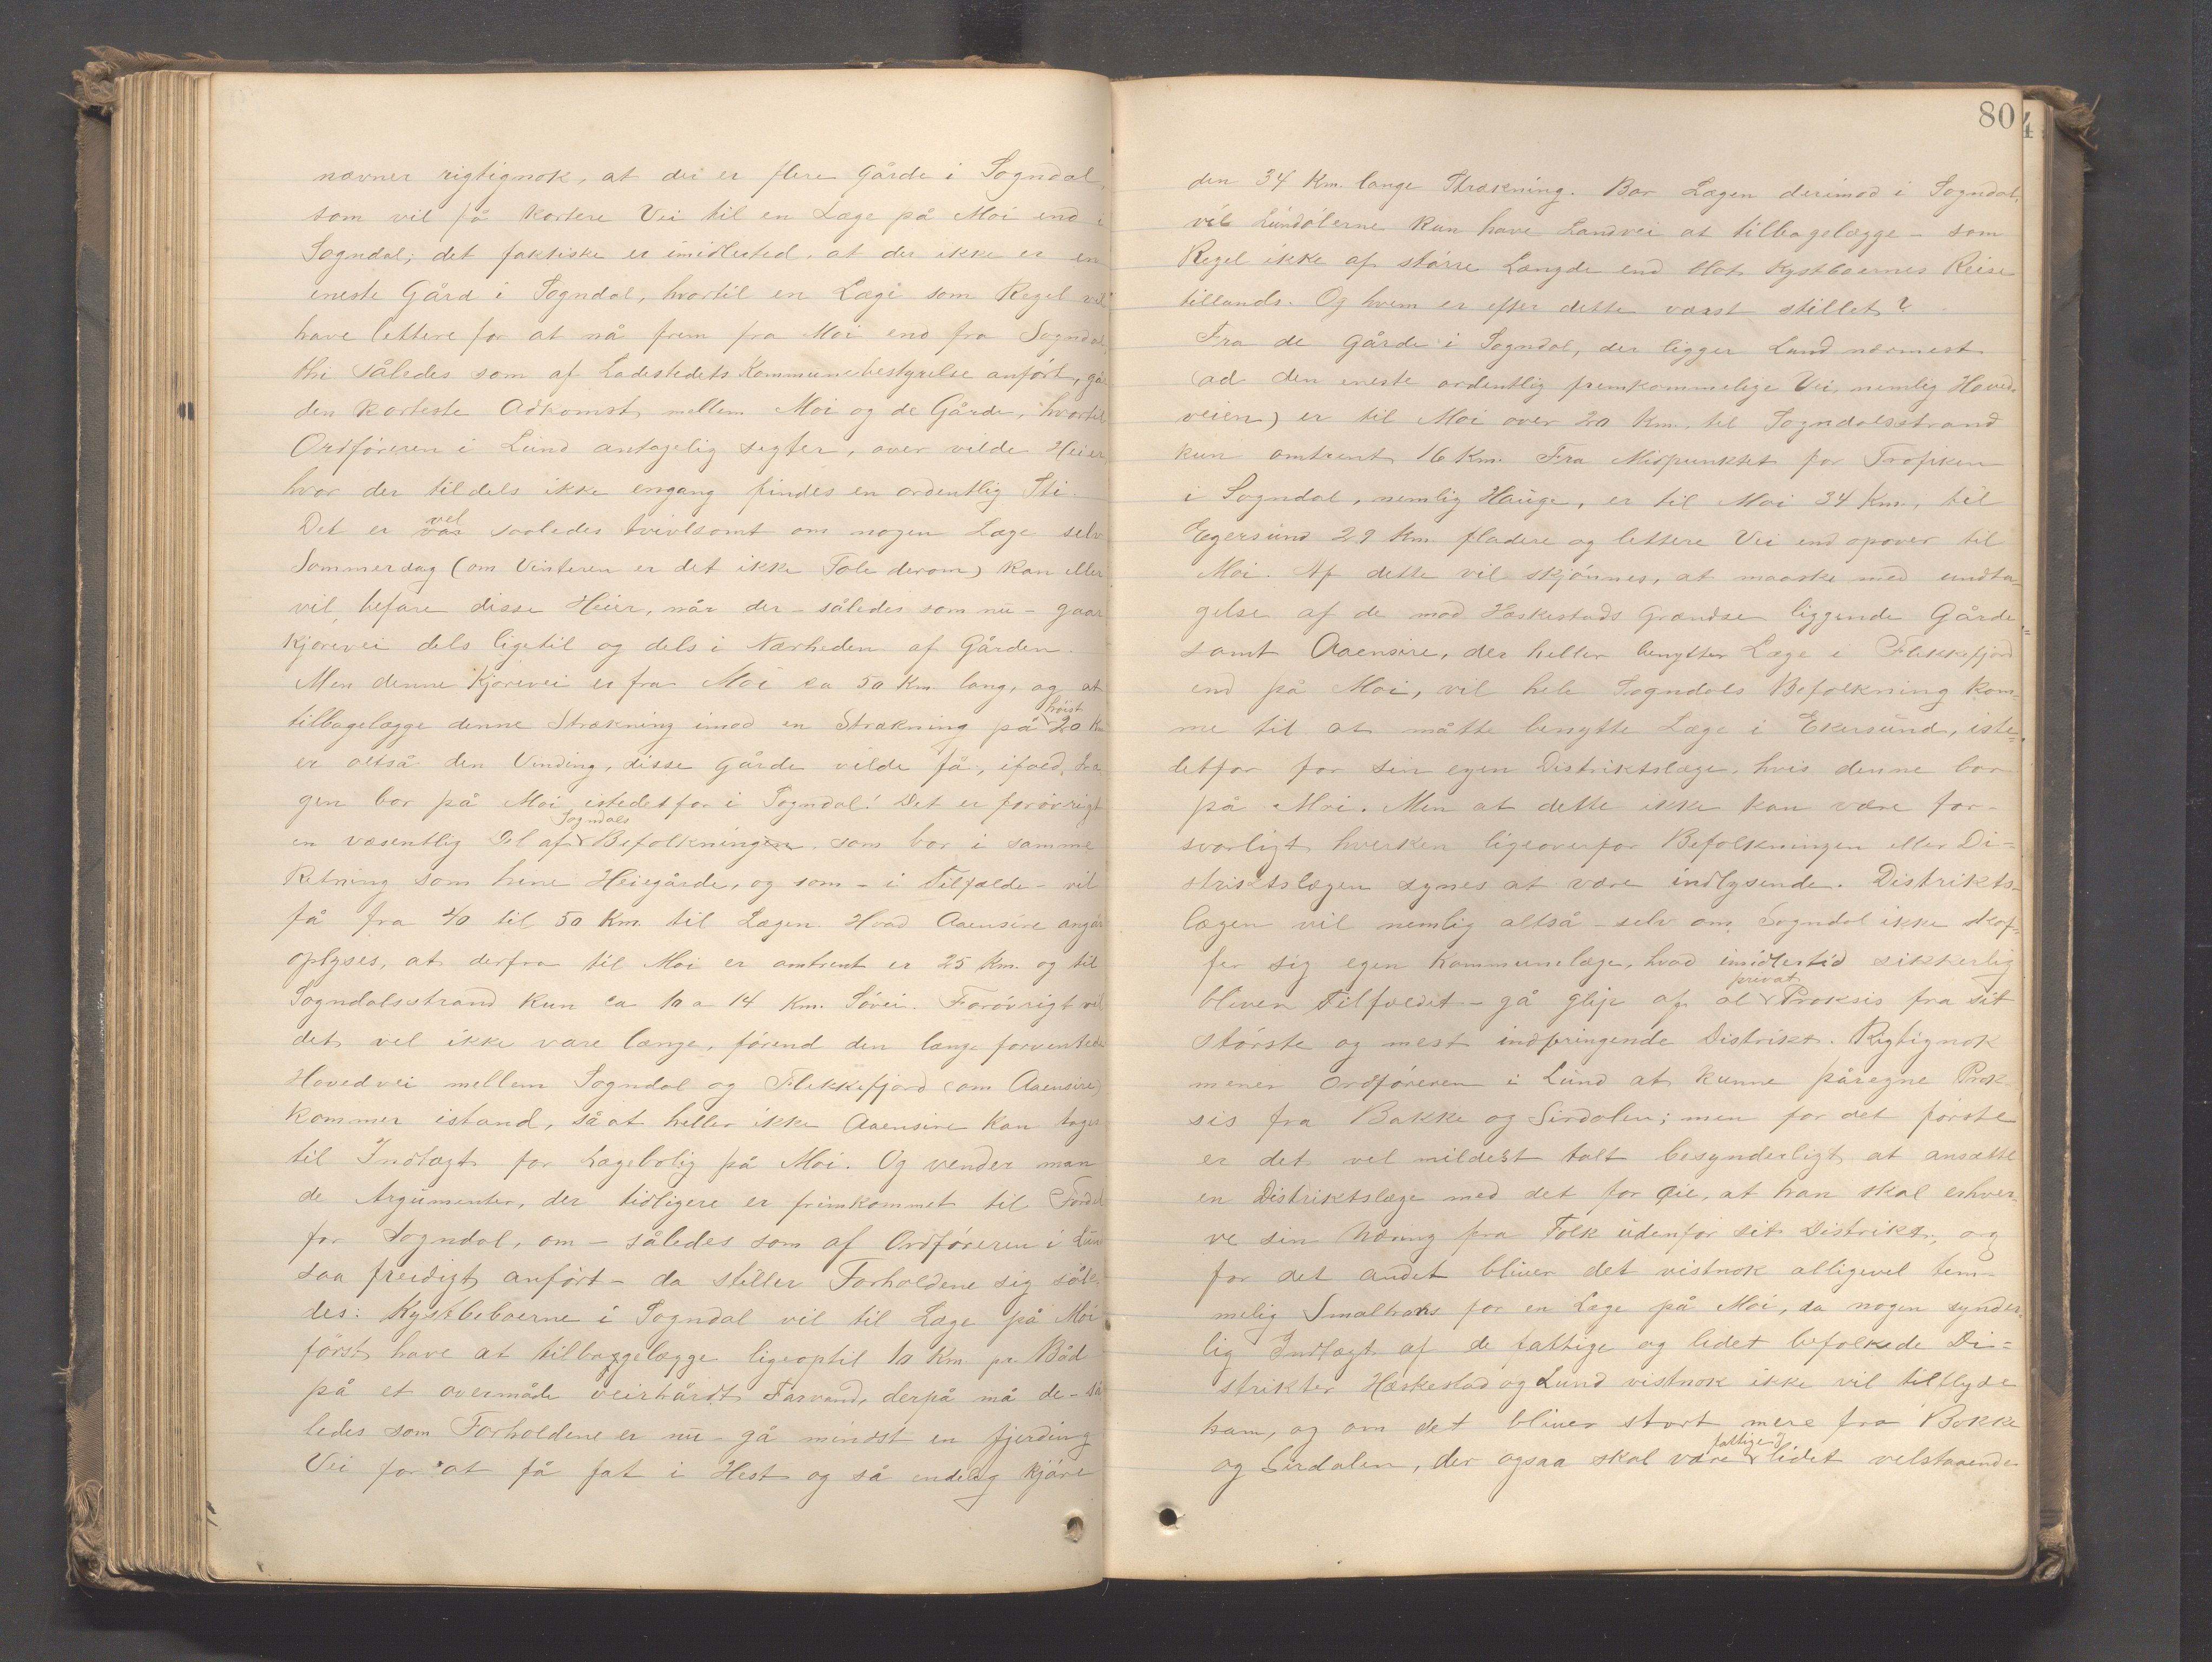 nævner rigtignok, at der er flere Gårde i Sogndal,
som vil få kortere Vei til en Læge på Moi end i
Sogndal; det faktiske er imidlertid, at der ikke er en
eneste Gård i Sogndal, hvortil en Læge som Regel vil
have lettere for at nå frem fra Moi end fra Sogndal,
thi således som af Ladestedets Kommunebestyrelse anført, går
den korteste Adkomst mellem Moi og de Gårde, hvortil
Ordføreren i Lund antagelig sigter, over vilde Heier
hvor der tildels ikke engang findes en ordentlig Sti.
Det er vel saaledes tvivlsomt om nogen Læge selv
Sommerdag (om Vinteren er det ikke Tale derom) kan eller
vil befare disse Heier, når der - således som nu - gaar
Kjørevei dels ligetil og dels i Nærheden af Gården.
Men denne Kjørevei er fra Moi ca 50 Km. lang, og at
tilbagelægge denne Strækning imod en Strækning på høist 20 Km
er altså den Vinding, disse Gårde vilde få, ifald Læ
gen bor på Moi istedetfor i Sogndal! Det er forøvrigt
en væsentlig Del af Sogndals Befolkning, som bor i samme
Retning som hine Heiegårde, og som - i Tilfælde - vil
få fra 40 til 50 Km. til Lægen. Hvad Aaensire angår
oplyses, at derfra til Moi er omtrent er 25 Km. og til
Sogndalsstrand kun ca 10 a 14 Km. Søvei. Forøvrigt vil
det vel ikke være længe, førend den længe forventede
Hovedvei mellem Sogndal og Flekkefjord (om Aaensire)
kommer istand, så at heller ikke Aaensire kan tages
til Indtægt for Lægebolig på Moi. Og vender man
de Argumenter, der tidligere er fremkommet til Fordel
for Sogndal, om - således som af Ordføreren i Lun
saa freidigt anført - da stiller Forholdene sig såle-
des: Kystbeboerne i Sogndal vil til Læge på Moi
først have at tilbaggelægge ligeoptil 10 Km. pr. Båd
på et overmåde veirhårdt Farvand, derpå må de - så
ledes som Forholdene er nu - gå mindst en fjerding
Vei for at få fat i Hest og så endelig kjøre
80
den 34 Km. lange Strækning. Bor Lægen derimod i Sogndal,
vil Lundølerne kun have Landvei at tilbagelægge - som
Regel ikke af større Længde end blot Kystboernes Reise
tillands. Og hvem er efter dette værst stillet?
Fra de Gårde i Sogndal, der ligger Lund nærmest
(ad den eneste ordentlig fremkommelige Vei, nemlig Hoved-
veien) er til Moi over 20 Km. til Sogndalsstrand
kun omtrent 16 Km. Fra Midpunktet for Trafiken
i Sogndal, nemlig Hauge, er til Moi 34 Km., til
Egersund 29 Km. fladere og lettere Vei end opover til
Moi. Af dette vil skjønnes, at maaske med undta-
gelse af de mod Hæskestads Grændse liggende Gårde,
samt Aaensire, der heller benytter Læge i Flekkefjord
end på Moi, vil hele Sogndals Befolkning kom-
me til at måtte benytte Læge i Ekersund, iste=
detfor for sin egen Distriktslæge, hvis denne bor
på Moi. Men at dette ikke kan være for-
svarligt hverken ligeoverfor Befolkningen eller Di-
striktslægen synes at være indlysende. Distrikts-
lægen vil nemlig altså - selv om Sogndal ikke skaf-
fer sig egen Kommunelæge, hvad imidlertid sikkerlig
bliver Tilfældet - gå glip af al privat Praksis fra sit
største og mest indbringende Distrikt. Rigtignok
mener Ordføreren i Lund at kunne påregne Prak-
sis fra Bakke og Sirdalen; men for det første
er det vel mildest talt besynderligt at ansætte
en Distriktslæge med det for Øie, at han skal erhver-
ve sin Næring fra Folk udenfor sit Distrikt, og
for det andet bliver det vistnok alligevel tem-
melig Smalhans for en Læge på Moi, da nogen synder-
lig Indtægt af de fattige og lidet befolkede Di=
strikter Hæskestad og Lund vistnok ikke vil tilflyde
ham, og om det bliver stort mere fra Bakke
og Sirdalen, der ogsaa skal være fattige & lidet velstaaende